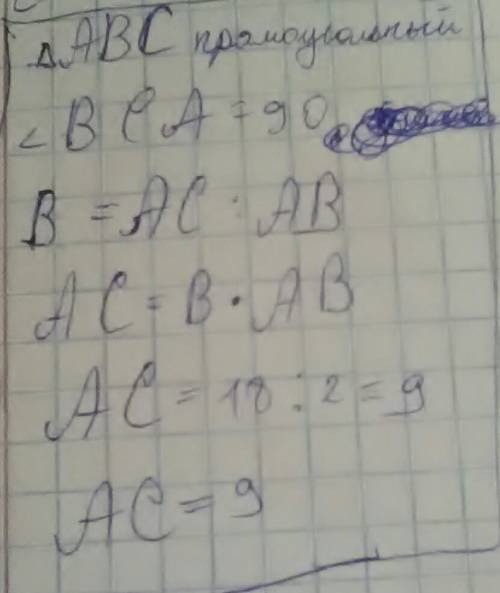 △ABC прямоугольный
<BCA=90
B=AC:AB
AC=B·AB
AC=18:2=9
AC=9